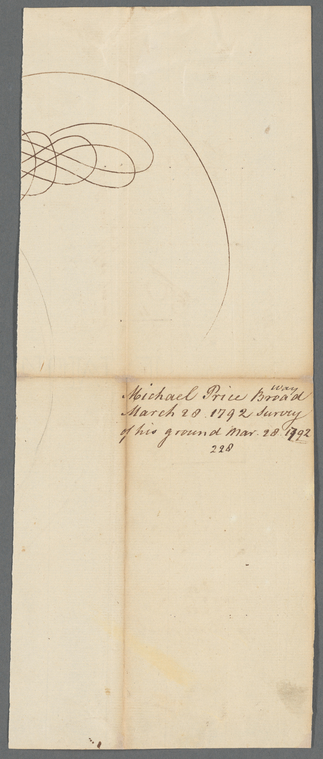 Michael Price Broadway
March 28. 1792 Survey
of his ground Mar. 28. 1792
228